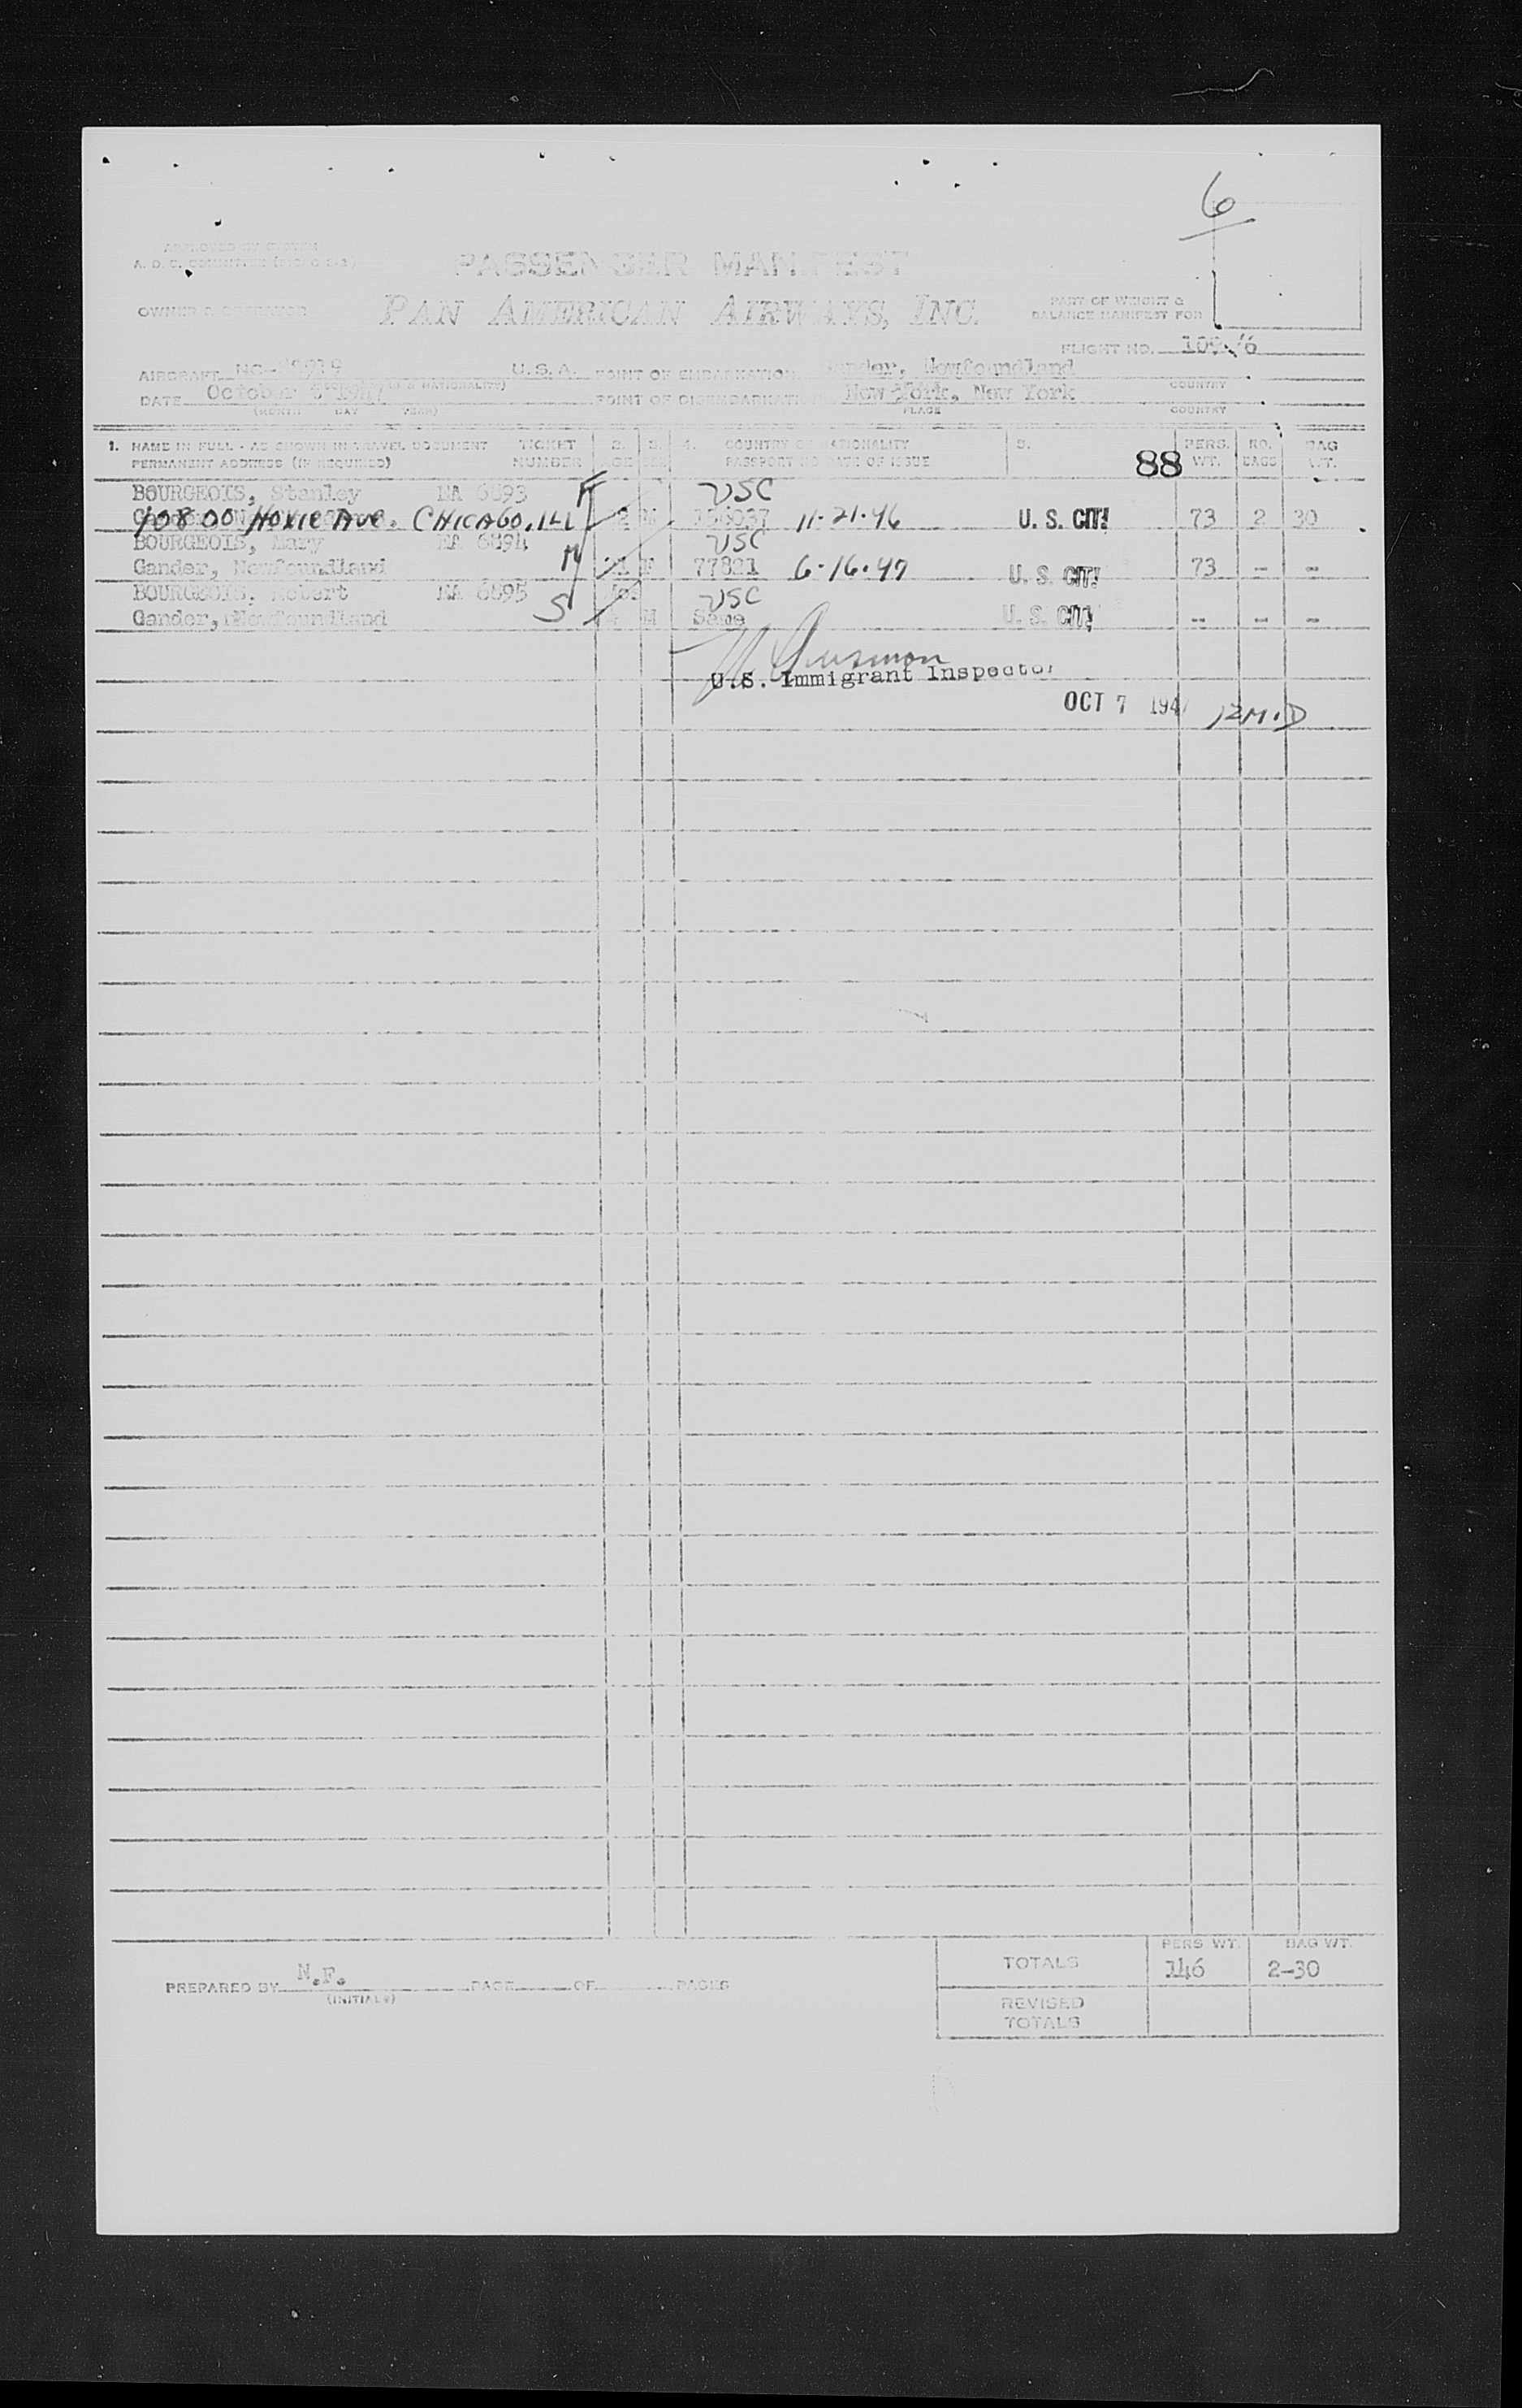 6
APPROVED BY
PASSENGER MANIFEST
OWNER & OPERATOR PAN AMERICAN AIRWAYS, INC. PART OF WEIGHT &
BALANCE MANIFEST FOR
FLIGHT NO.
AIRCRAFT NC- U.S.A. POINT OF EMBARKATION Gander, Newfoundland
DATE October 1947 POINT OF DISEMBARKATION New York, New York COUNTRY
(MONTH DAY YEAR) PLACE COUNTRY
1. NAME IN FULL - AS SHOWN IN TRAVEL DOCUMENT TICKET 2. 3. 4. COUNTRY OF NATIONALITY 5. PERS. NO. BAG
PERMANENT ADDRESS (IF REQUIRED) NUMBER PASSPORT NO DATE OF ISSUE 88 WT. BAGS WT.
BOURGEOIS, Stanley 6893 F USC
10800 HOXIE AVE. CHICAGO, ILL M 11-21-46 U. S. CIT! 73 2 30
BOURGEOIS, Mary 6894 M USC
Gander, Newfoundland F 77821 6-16-47 U. S. CIT! 73 - -
BOURGEOIS, Robert 6895 S USC
Gander, Newfoundland M Same U. S. CIT! - - -
U.S. Immigrant Inspector
OCT 7 194
TOTALS PERS WT. BAG WT.
146 2-30
PREPARED BY N.F. PAGE OF PAGES
(INITIALS)
REVISED
TOTALS